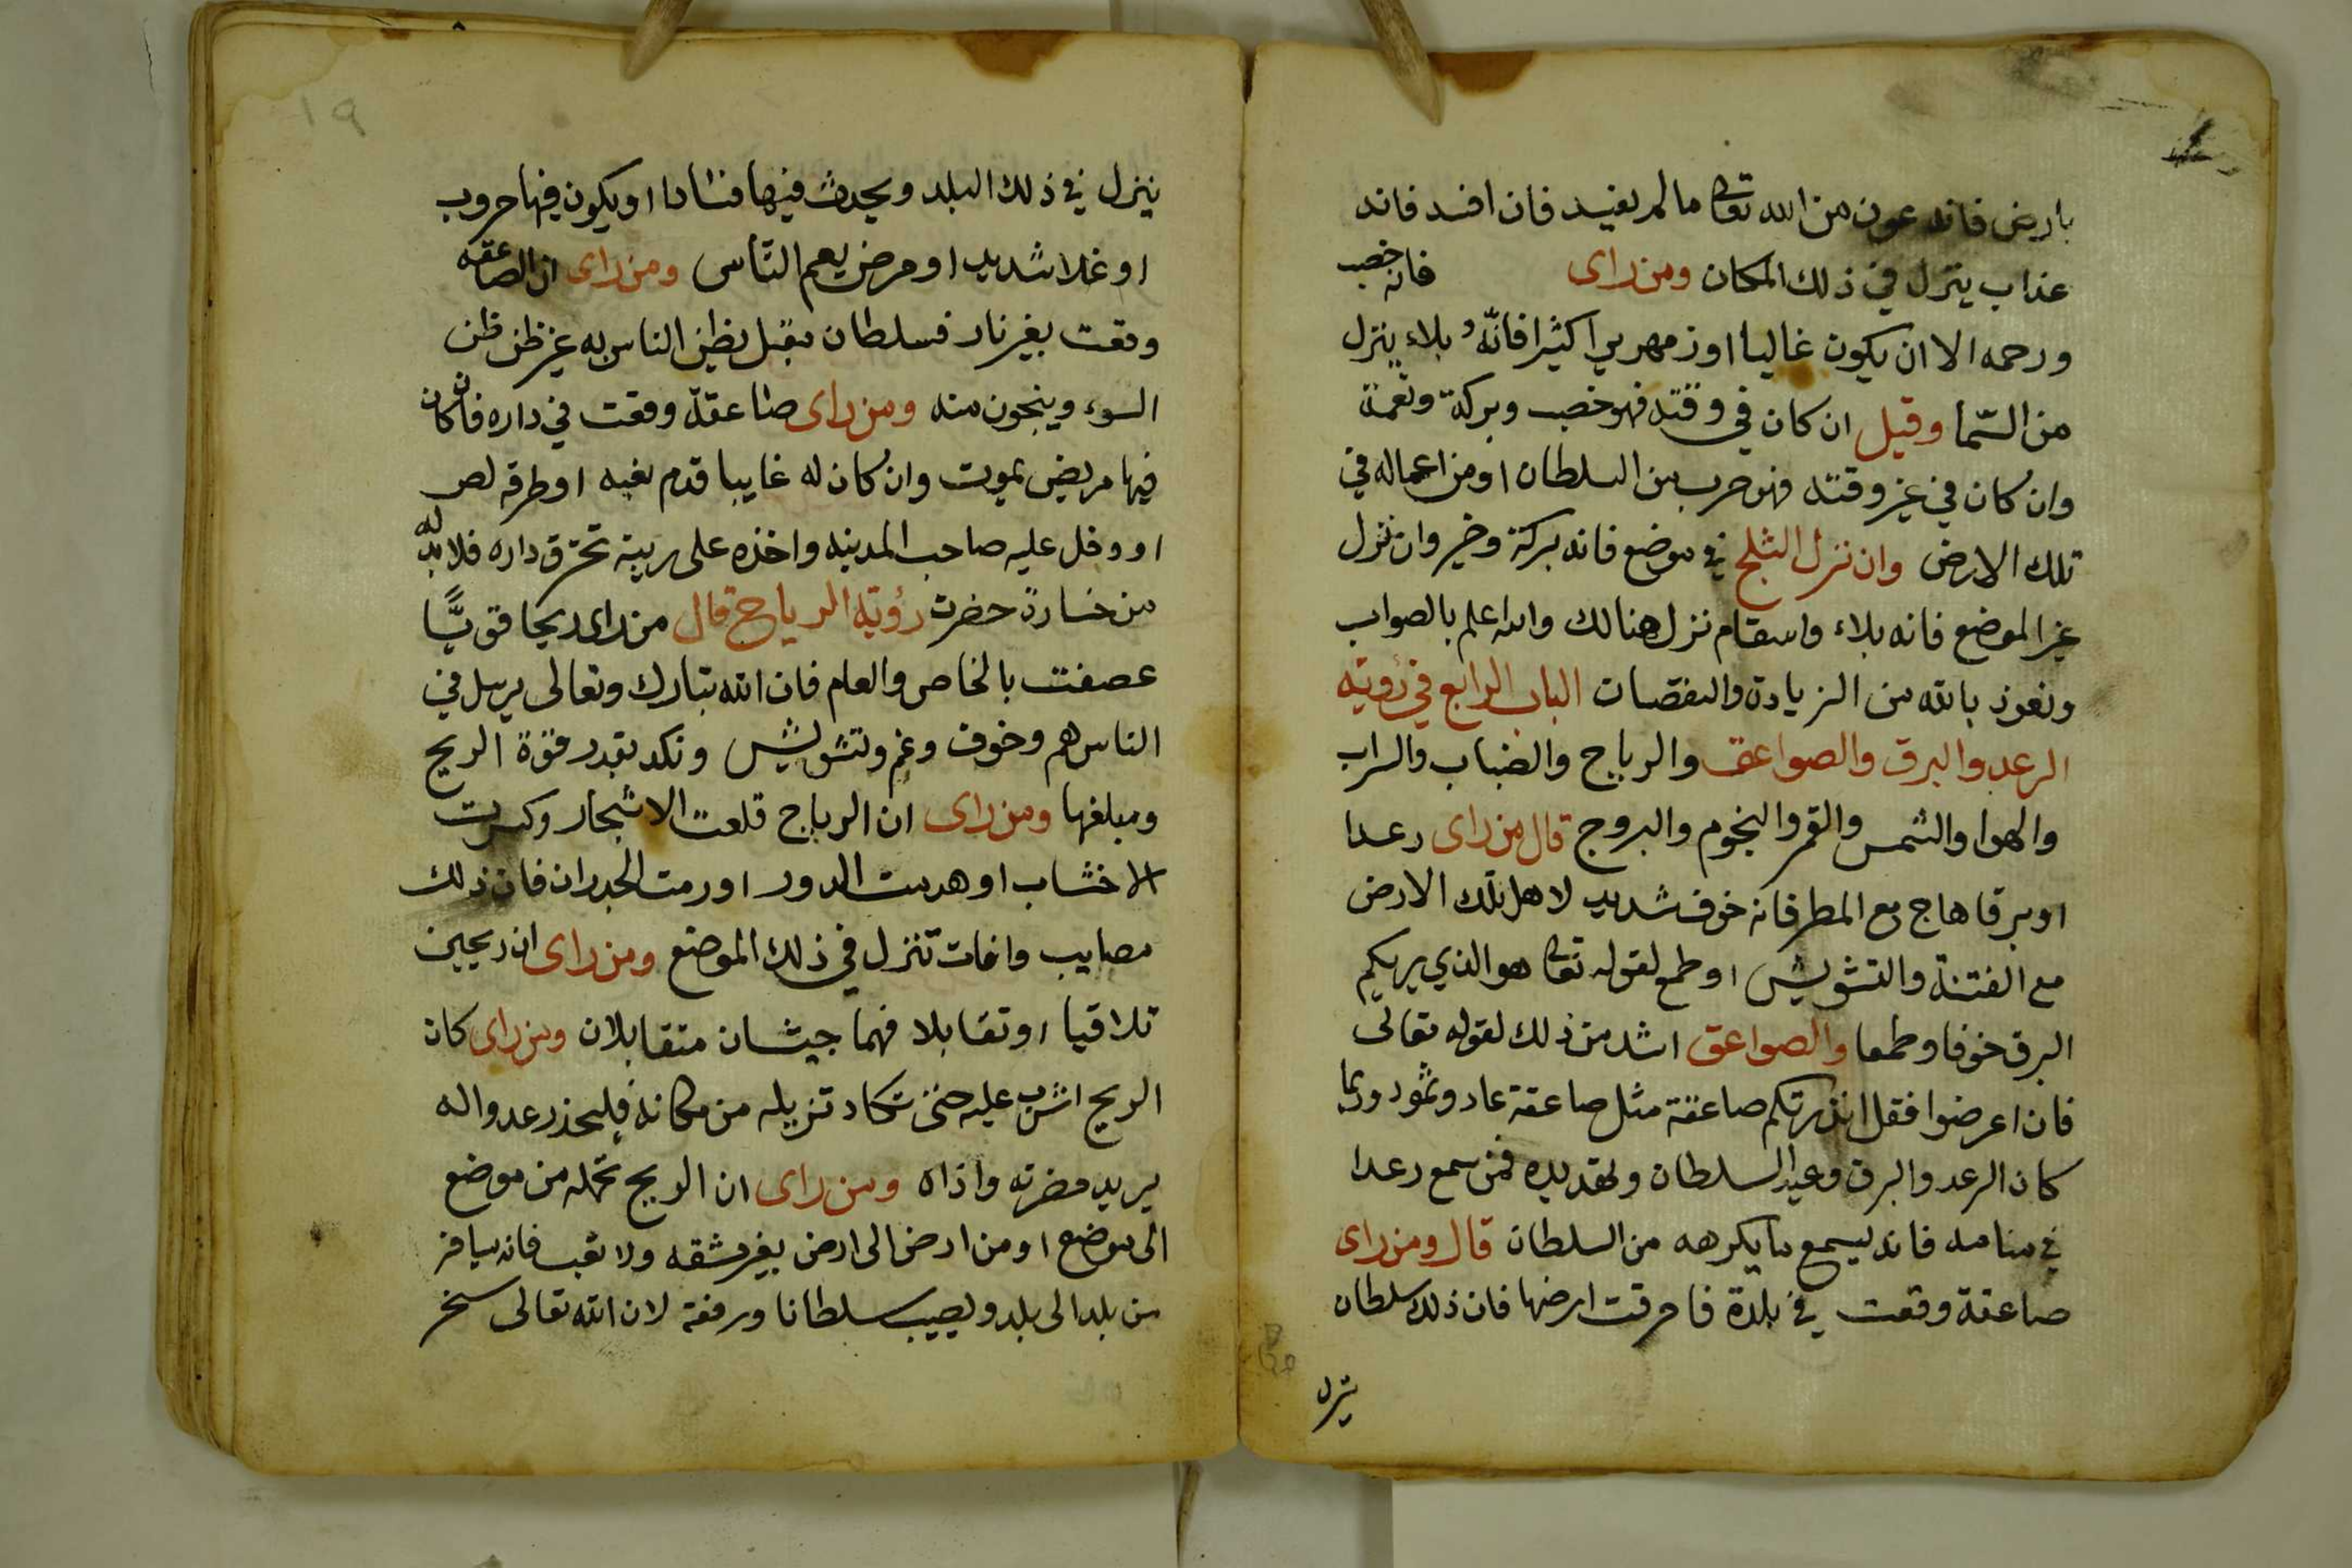 بارض فانه عون من الله تعالى ما لم يفسد فان افسد فانه
عذاب ينزل في ذلك المكان ومن راى فانه خصب
ورحمه الا ان يكون غالبا او زمهرير اكثيرا فانّه بلاء ينزل
من السّما وقيل ان كان في وقته فهو خصب وبركة ونعمة
وان كان في غير وقته فهو حرب من السلطان او من اعماله في
تلك الارض وان نزل الثلج في موضع فانه بركة وخير وان نزل
غير الموضع فانه بلاء واسقام نزل هنالك والله اعلم بالصواب
ونعوذ بالله من الزيادة والنقصان الباب الرابع في رؤية
الرعد والبرق والصواعق والرياح والضباب والسراب
والهوا والشمس والقمر والنجوم والبروج قال من راى رعدا
او برقا هاج مع المطر فانه خوف شديد لاهل تلك الارض
مع الفتنة والتشويش او طمع لقوله تعالى هو الذي يريكم
البرق خوفا وطمعا والصواعق اشد من ذلك لقوله تعالى
فان اعرضوا فقل انذرتكم صاعقة مثل صاعقة عاد وثمود وربما
كان الرعد والبرق وعيد السلطان وتهديده فمن سمع رعدا
في منامه فانه ليسمع ما يكرهه من السلطان قال ومن راى
صاعقة وقعت في بلدة فاحرقت ارضها فان ذلك سلطان
ينزل
١٩
ينزل في ذلك البلد ويحدث فيها فسادا او يكون فيها حروب
او غلا شديد او مرض يعم النّاس ومن راى ان الصاعقه
وقعت بغير نار فسلطان مقبل يظن الناس به غير ظن ظن
السوء وينجون منه ومن راى صاعقة وقعت في داره فان كان
فيها مريض يموت وان كان له غايبا قدم نعيه او طرقه لص
او دخل عليه صاحب المدينه واخذه على ريبة تحترق داره فلا بد له
من خسارة حضرت رؤية الرياح قال من راى ريحا قويًّا
عصفت بالخاص والعام فان الله تبارك وتعالى يرسل في
الناس هم وخوف وغم وتشويش ونكد بقدر قوة الريح
ومبلغها ومن راى ان الرياح قلعت الاشجار وكسرت
الاخشاب او هدمت الدور او رمت الجدران فان ذلك
مصايب وافات تنزل في ذلك الموضع ومن راى ان ريحين
تلاقيا او تقابلا فهما جيشان متقابلان ومن راى كان
الريح اشرب عليه حتى تكاد تزيله من مكانه فليحذر عدوا له
يريد مضرته واذاه ومن راى ان الريح تحمله من موضع
الى موضع او من ارض الى ارض بغير مشقه ولا تعب فانه يسافر
من بلد الى بلد ويصيب سلطانا ورفعة لان الله تعالى سخر